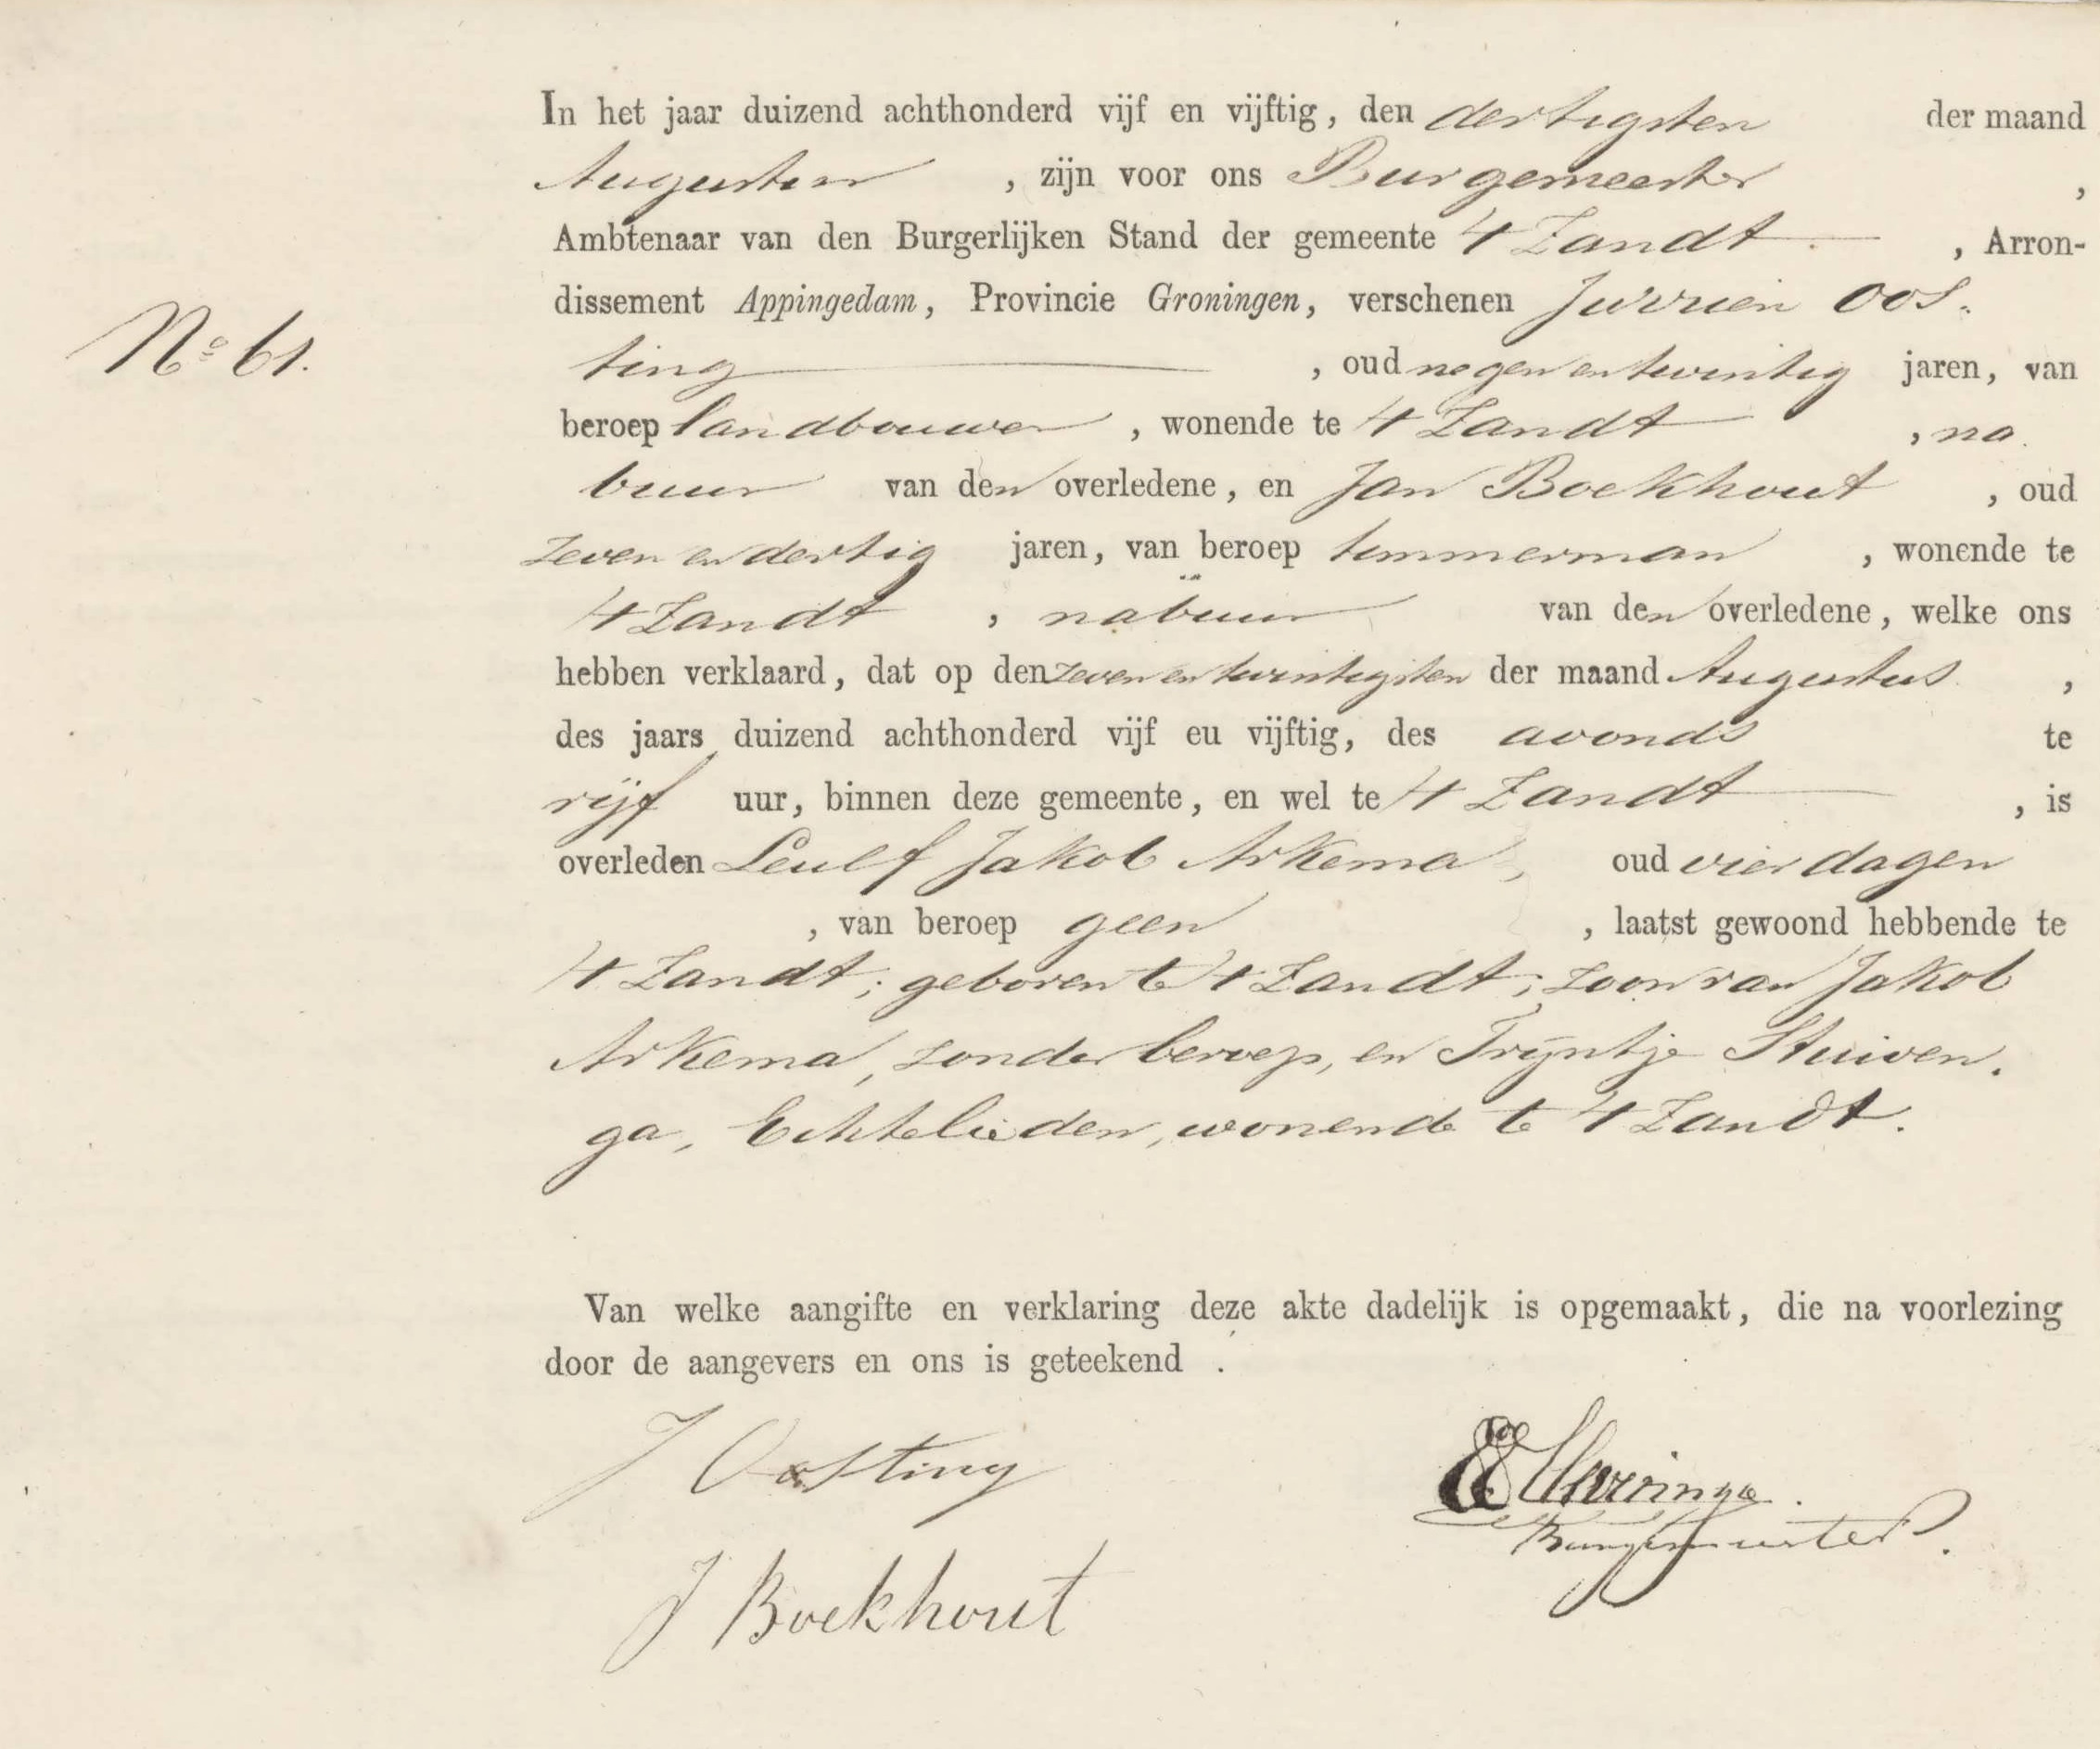 In het jaar duizend achthonderd vijf en vijftig, den dertigsten der maand
Augustus, zijn voor ons Burgemeester,
Ambtenaar van den Burgerlijken Stand der gemeente 't Zandt, Arron-
dissement Appingedam, Provincie Groningen, verschenen Jurrien Oos-
No 61.
ting, oud negen en twintig jaren, van
beroep landbouwer, wonende te 't Zandt, na
buur van den overledene, en Jan Boekhout, oud
zeven en dertig jaren, van beroep timmerman, wonende te
't Zandt, nabuur van den overledene, welke ons
hebben verklaard, dat op den zeven en twintigsten der maand Augustus,
des jaars duizend achthonderd vijf eu vijftig, des avonds te
vijf uur, binnen deze gemeente, en wel te 't Zandt, is
overleden Leulf Jakob Arkema, oud vier dagen
, van beroep geen, laatst gewoond hebbende te
't Zandt; geboren te 't Zandt; zoon van Jakob
Arkema, zonder beroep, en Trijntje Stuiven-
ga, Echtelieden, wonende te 't Zandt.
Van welke aangifte en verklaring deze akte dadelijk is opgemaakt, die na voorlezing
door de aangevers en ons is geteekend .
J Oosting
Burgemeester.
J Boekhout